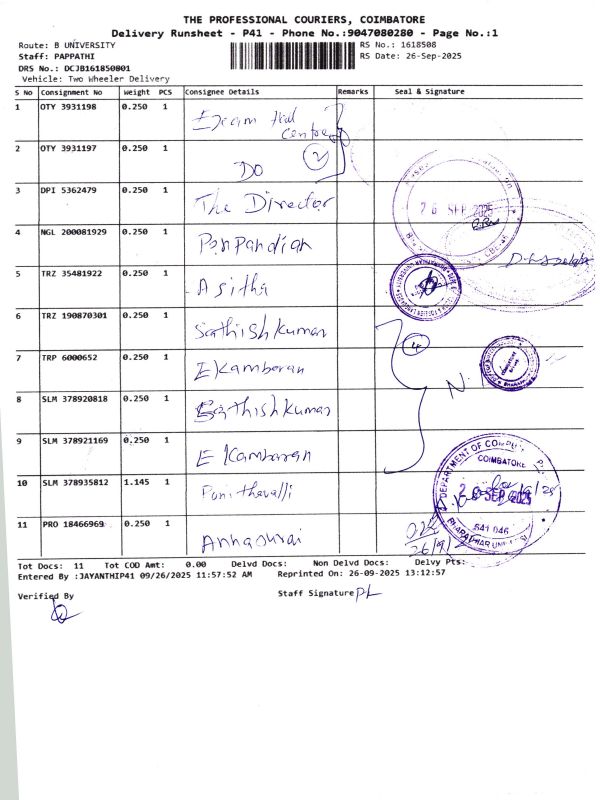 THE PROFESSIONAL COURIERS, COIMBATORE
Delivery Runsheet - P41 - Phone No.:9047080280 - Page No.:1
Route: B UNIVERSITY
RS No.: 1618508
Staff: PAPPATHI
RS Date: 26-Sep-2025
DRS No.: DCJB161850801
Vehicle: Two Wheeler Delivery
S No Consignment No Weight PCS Consignee Details Remarks Seal & Signature
1 OTY 3931198 0.250 1 Exam Hal Centre
2 OTY 3931197 0.250 1 DO 2
3 DPI 5362479 0.250 1 The Director
26 SEP 2025
4 NGL 200081929 0.250 1 Ponpandian
5 TRZ 35481922 0.250 1 Asitha
6 TRZ 190870301 0.250 1 Sathishkumar
4
7 TRP 6000652 0.250 1 Ekambaran
N.
8 SLM 378920818 0.250 1 Sathishkumar
9 SLM 378921169 0.250 1 Ekambaran
DEPARTMENT OF
COIMBATORE
10 SLM 378935812 1.145 1 Punithavalli
SEP 2025
11 PRO 18466969 0.250 1 Annadurai
641 046
26/9/
Tot Docs: 11 Tot COD Amt: 0.00 Delvd Docs: Non Delvd Docs: Delvy Pts:
Entered By :JAYANTHIP41 09/26/2025 11:57:52 AM Reprinted On: 26-09-2025 13:12:57
Verified By
Staff Signature